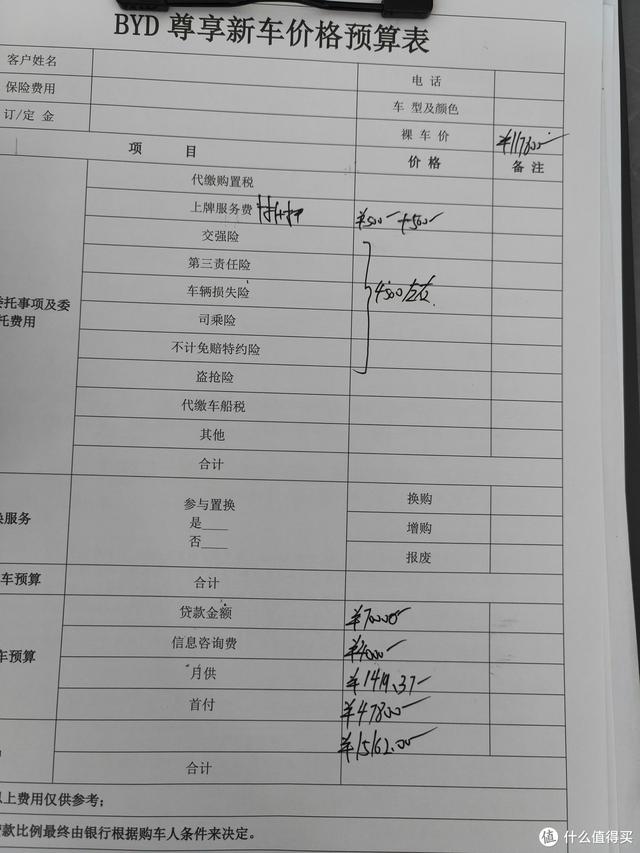 BYD 尊享新车价格预算表
客户姓名 电 话
保险费用 车 型及颜色
订/定 金 裸 车 价 ¥117800
项 目 价 格 备 注
代缴购置税
上牌服务费 ¥500 +500
交强险
第三责任险
车辆损失险 4500左右
司乘险
不计免赔特约险
盗抢险
代缴车船税
其他
合计
托事项及委
托费用
参与置换
是____
否____
换购
增购
报废
服务
车预算 合计
贷款金额 ¥70000
信息咨询费 ¥4000
车预算
月供 ¥1419.37
首付 ¥47800
¥15162.00
合计
以上费用仅供参考；
贷款比例最终由银行根据购车人条件来决定。
值 什么值得买